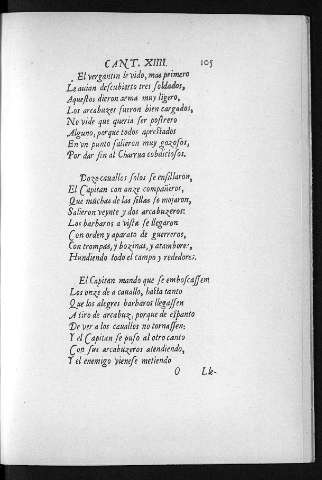 CANT. XIIII. 105
El vergantin le vido, mas primero
Le auian descubierto tres soldados,
Aquestos dieron arma muy ligero,
Los arcabuzes fueron bien cargados,
No vide que queria ser postrero
Alguno, porque todos aprestados
En vn punto salieron muy gozosos,
Por dar fin al Charrua cobdiciosos.
Doze cauallos solos se ensillaron,
El Capitan con onze compañeros,
Que muchas de las sillas se mojaron,
Salieron veynte y dos arcabuzeros:
Los barbaros a vista se llegaron
Con orden y aparato de guerreros,
Con trompas, y bozinas, y atambores,
Hundiendo todo el campo y rededores.
El Capitan mando que se emboscassem
Los onze de a cauallo, hasta tanto
Que los alegres barbaros llegassen
A tiro de arcabuz, porque de espanto
De ver a los cauallos no tornassen:
Y el Capitan se puso al otro canto
Con sus arcabuzeros atendiendo,
Y el enemigo vienese metiendo
O Lle-